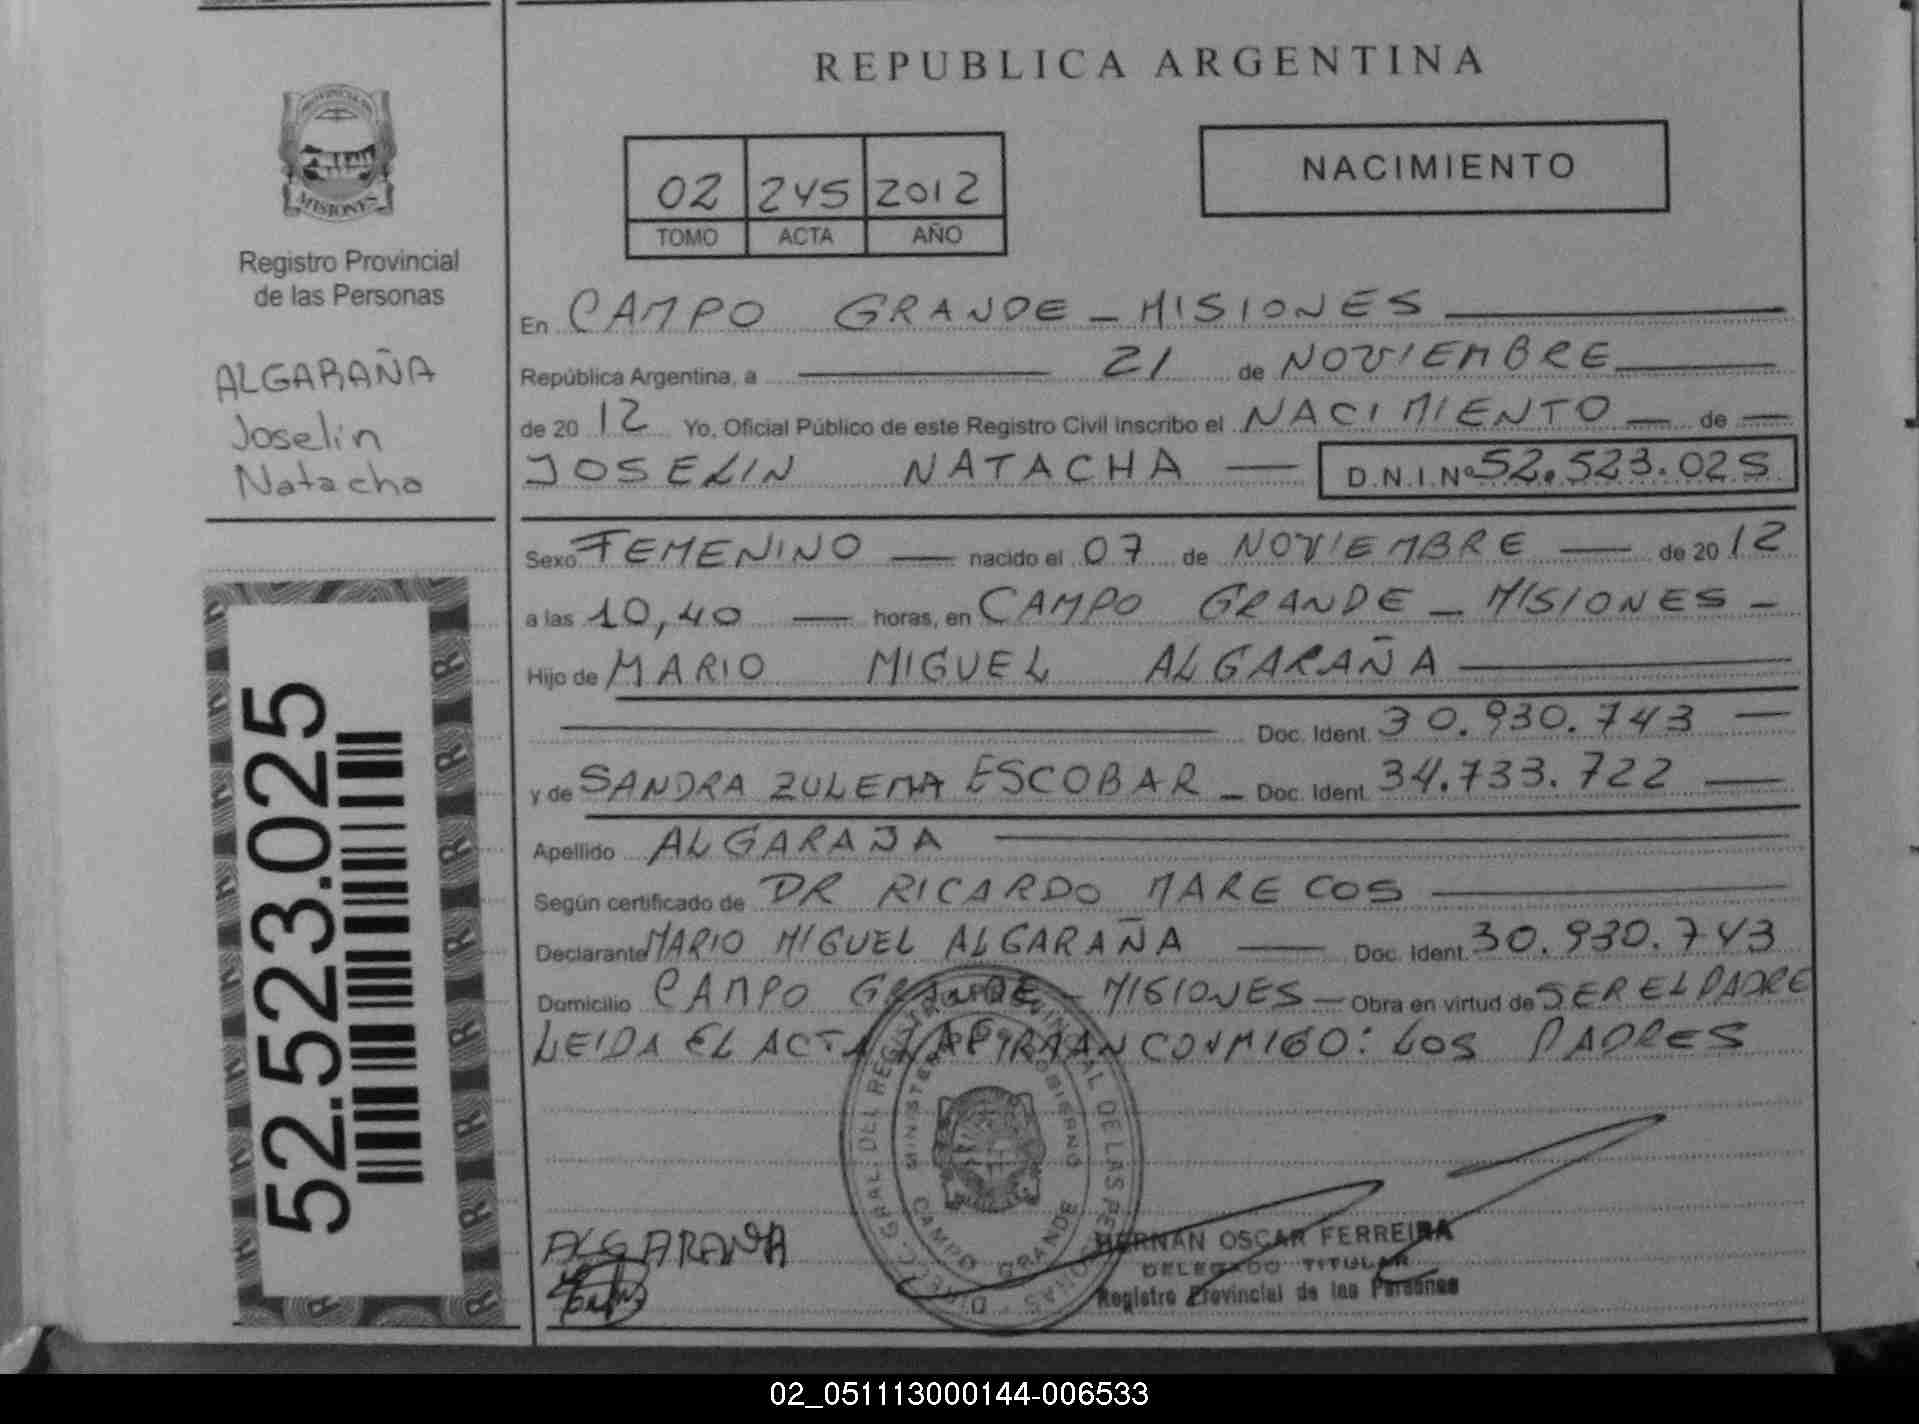 REPUBLICA ARGENTINA
PROVINCIA DE
MISIONES
Registro Provincial
de las Personas
ALGARAÑA
Joselin
Natacha
02 245 2012
TOMO ACTA AÑO
NACIMIENTO
En CAMPO GRANDE - MISIONES
República Argentina, a 21 de NOVIEMBRE
de 2012 Yo, Oficial Público de este Registro Civil inscribo el NACIMIENTO de
JOSELIN NATACHA D.N.I.Nº 52.523.025
Sexo FEMENINO nacido el 07 de NOVIEMBRE de 2012
a las 10,40 horas, en CAMPO GRANDE - MISIONES -
Hijo de MARIO MIGUEL ALGARAÑA
Doc. Ident. 30.930.743
y de SANDRA ZULEMA ESCOBAR - Doc. Ident. 34.733.722
Apellido ALGARAÑA
Según certificado de DR RICARDO MARECOS
Declarante MARIO MIGUEL ALGARAÑA Doc. Ident. 30.930.743
Domicilio CAMPO GRANDE - MISIONES - Obra en virtud de SER EL PADRE
LEIDA EL ACTA LA FIRMAN CONMIGO: LOS PADRES
52.523.025
DIREC. GRAL. DEL REGISTRO PROVINCIAL DE LAS PERSONAS
MINISTERIO DE GOBIERNO
CAMPO GRANDE
ALGARAÑA
HERNAN OSCAR FERREIRA
DELEGADO TITULAR
Registro Provincial de las Personas
02_051113000144-006533